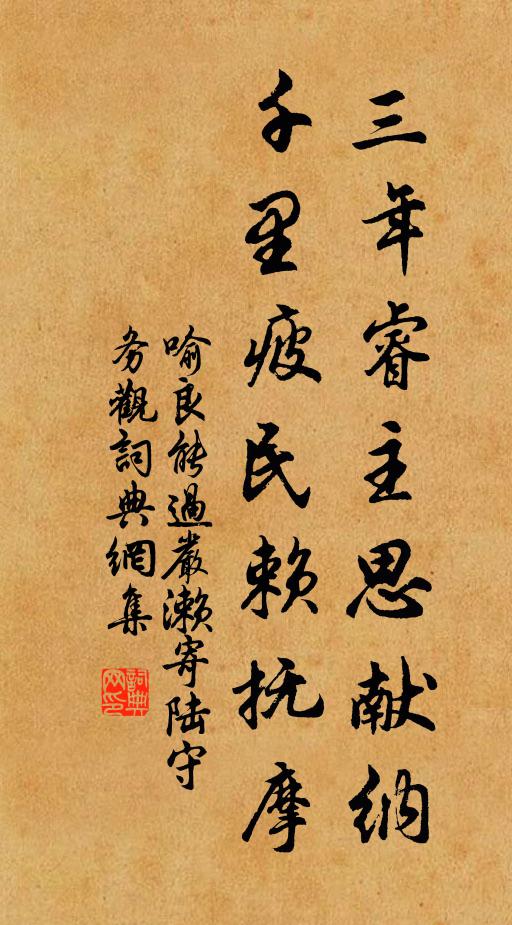 三年睿主思献纳
千里疲民赖抚摩
喻良能過嚴瀨寄陆守
务觀詞典網集
詞典网印